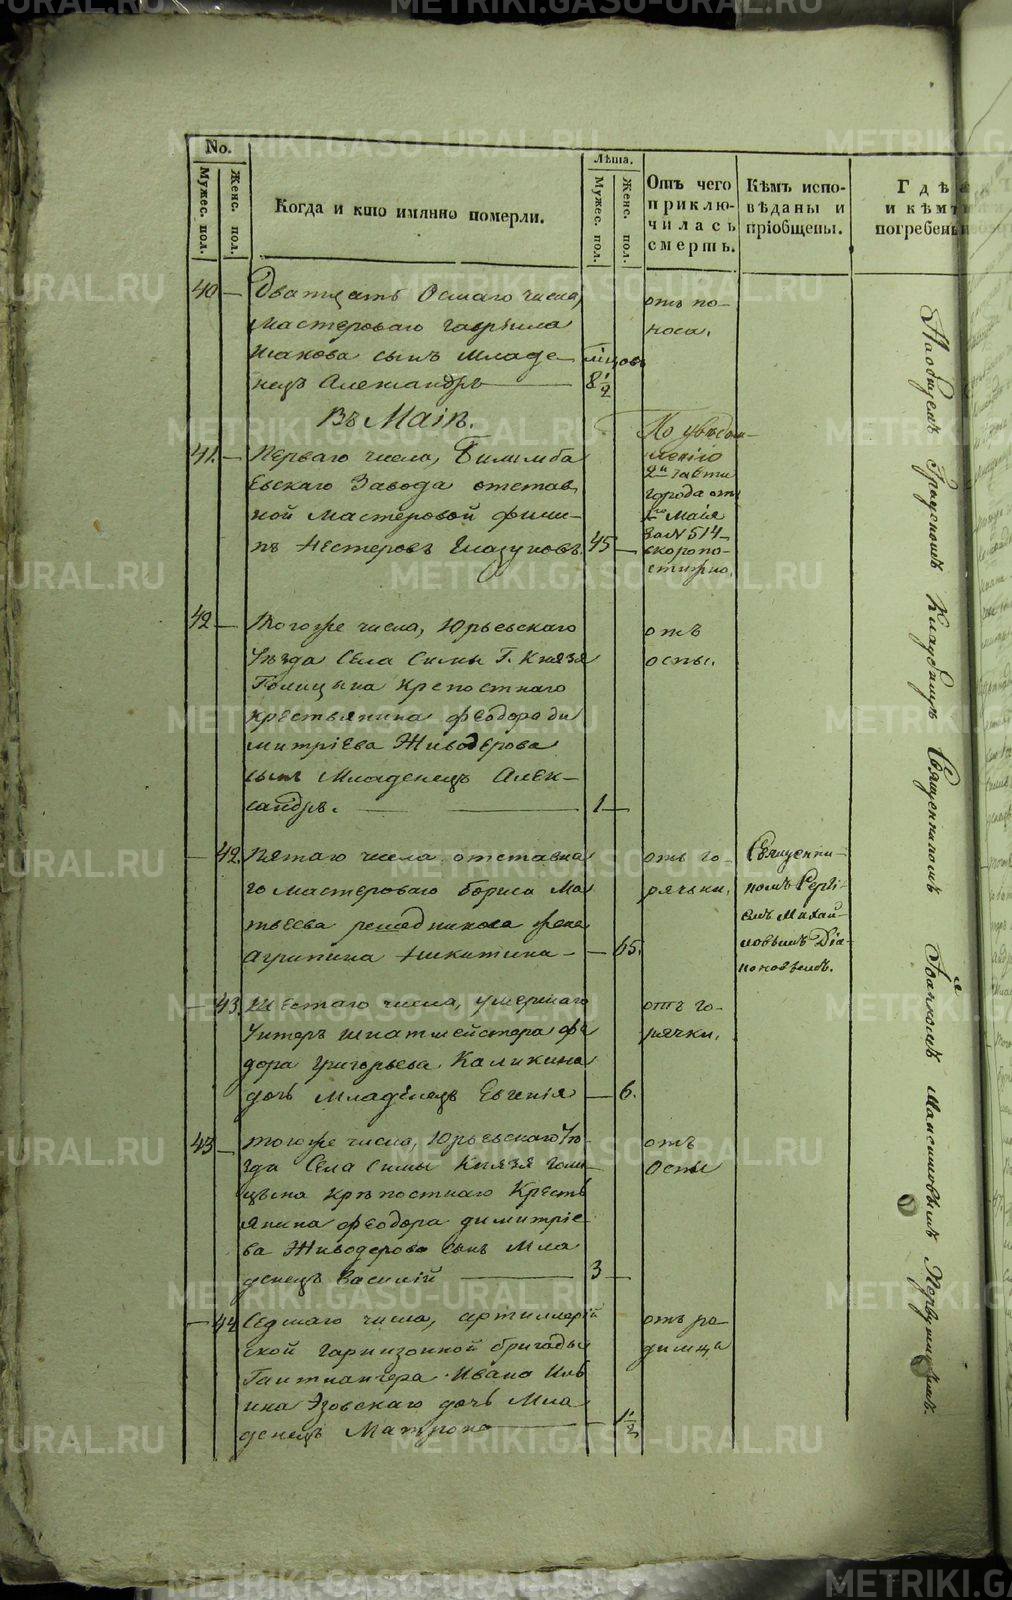 No.
Мужес. пол.
Женс. пол.
Когда и кто имянно померли.
Лѣта.
Мужес. пол.
Женс. пол.
Отъ чего
приклю-
чилась
смерть.
Кѣмъ испо-
вѣданы и
пріобщены.
Гдѣ
и кѣмъ
погребены
40 — Дватцать Осмаго числа,
мастероваго Гаврила
Исакова сынъ Младе-
нецъ Александръ —
мѣсцовъ
8 1/2
отъ по-
носа.
Въ Маіѣ.
41. — Перваго числа, Билимба
евскаго Завода отстав
ной мастеровой Фили-
пъ Нестеровъ Глазуновъ 45 —
По увѣдом-
ленію
2й части
города отъ
Маія
за N 514
скоропо-
стижно.
42 — Тогоже числа, Юрьевскаго
Уѣзда Села Симы Г. Князя
Голицына крепостнаго
крестьянина Феодора Ди
митріева Живодерова
сынъ Младенецъ Алек-
сандръ. — 1 —
отъ
оспы.
— 42. Пятаго числа отставна
го мастероваго Бориса Ма
твеева жена
Агрипина Никитина — 65.
отъ го-
рячьки.
Священни-
комъ Сергі-
емъ Михай-
ловымъ Діа-
коновымъ.
— 43. Шестаго числа, умершаго
Унтеръ Шихтмейстера Фе
дора Григорьева Каликина
дочь Младенецъ Евгенія — 6.
отъ го-
рячки.
43 — тогоже числа, Юрьевскаго Уѣ-
зда Села Симы Князя Голи-
цына Крѣпостнаго Кресть
янина Феодора Димитріе-
ва Живодерова сынъ Мла
денецъ Василій — 3 —
отъ
Оспы
— 44 Седмаго числа, артиллерій
ской гарнизонной бригады
Гантлангера Ивана Иль
ина Эзовскаго дочь Мла
денецъ Матрона — 1 1/2
отъ ро-
димца
На общемъ Градскомъ Кладбищѣ Священникомъ Іоанномъ Максимовымъ Первушинымъ.
METRIKI.GASO-URAL.RU